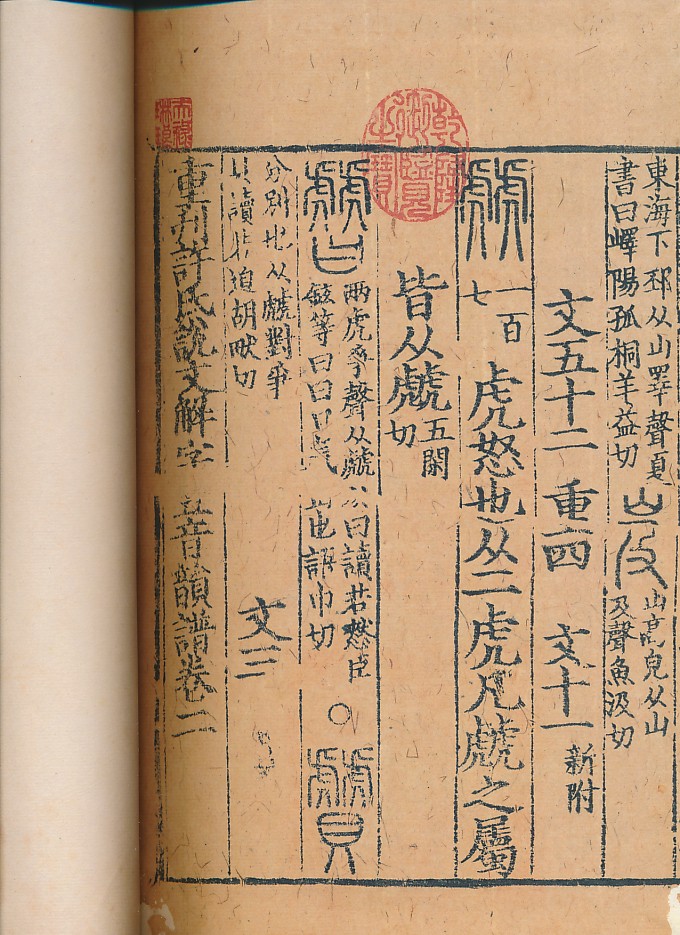 東海下邳从山睪聲夏
書曰嶧陽孤桐羊益切
岌
山高皃从山
及聲魚汲切
文五十二 重四 文十一 新附
虤 一百七 虎怒也从二虎凡虤之屬
皆从虤 五閑切
兩虎爭聲从虤从曰讀若憖臣
鉉等曰曰口气出也語巾切
○
贙
分別也从虤對爭
貝讀若迴胡畎切
文三
重刊許氏說文解字五音韻譜卷二
乾隆御覽之寶
天祿琳琅